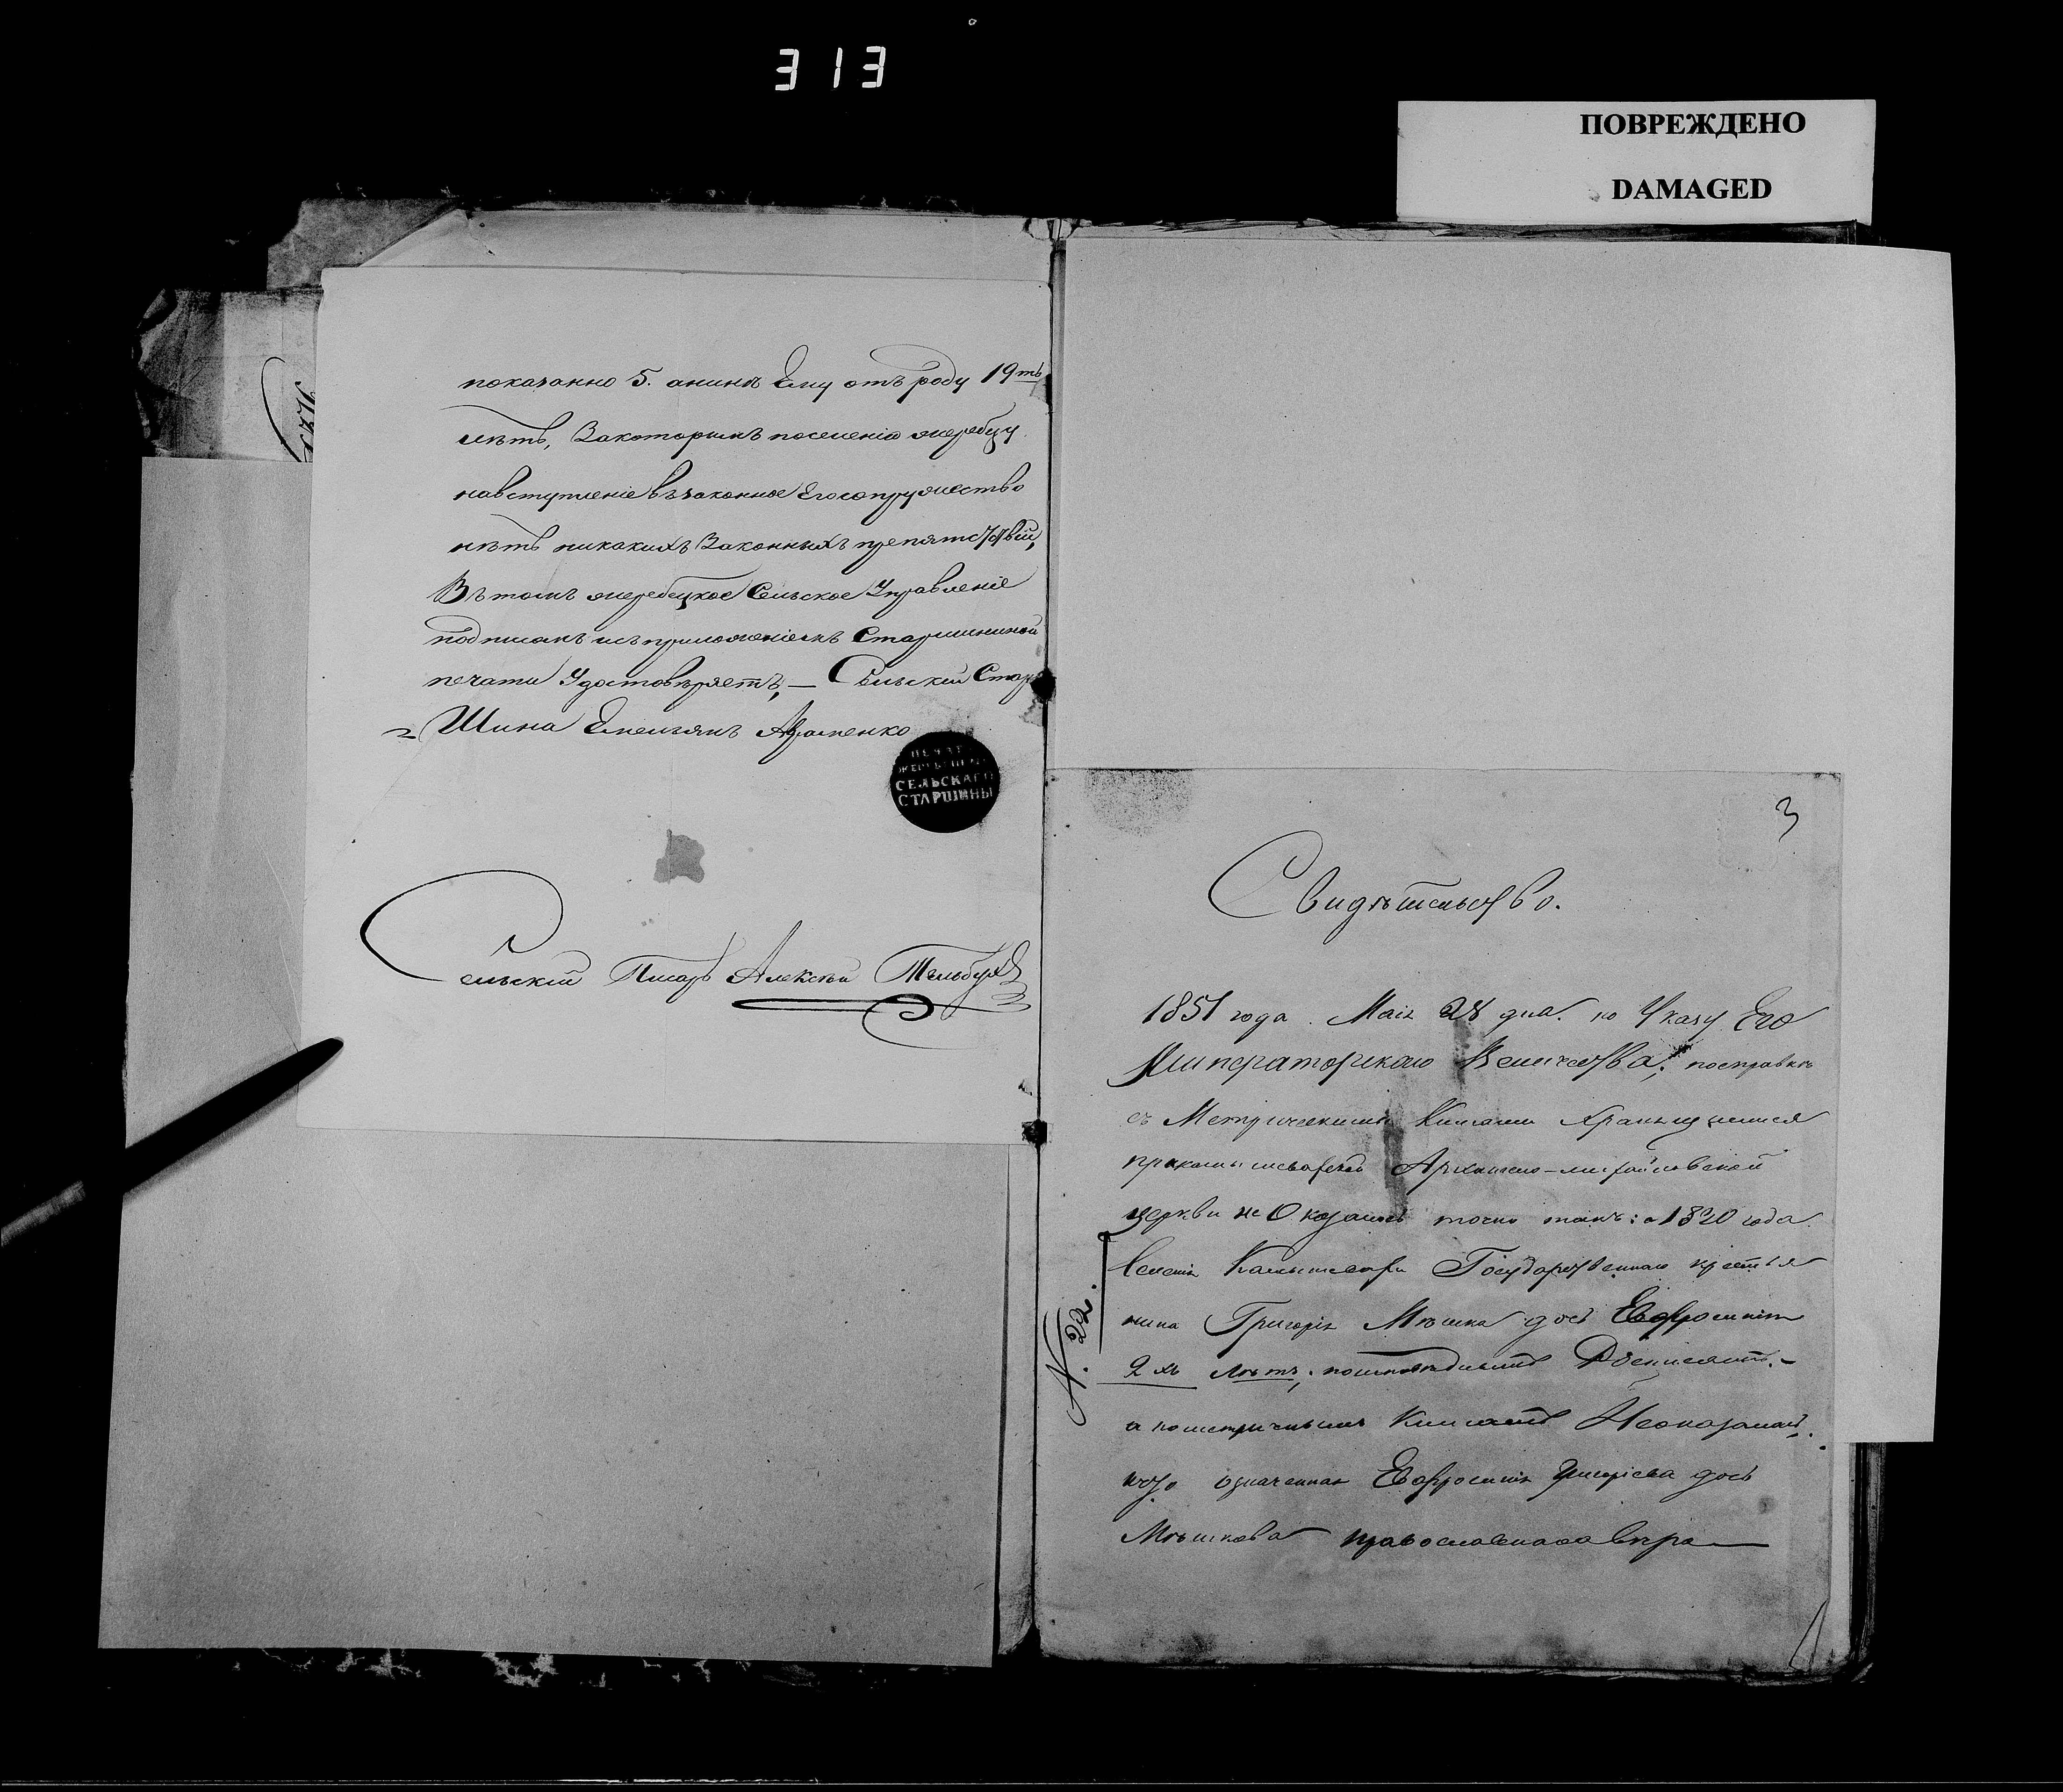 313
ПОВРЕЖДЕНО
DAMAGED
показанно 5. анинѣ Ему отъ роду 19ть
лѣтъ, Закоторымъ поселенію жеребцу
навступленіе взаконное Егосопружество
нѣтъ никакихъ Законныхъ препятствій,
Вътомъ жеребецкое Сельское Управленіе
подписомъ исъприложеніемъ Старшинной
печати Удостовѣряетъ, — Сельскій Стар
Шина Емельянъ Авраменко
ПЕЧАТ
СЕЛЬСКАГО
СТАРШИНЫ
Сельскій Писарь Алексѣй
3
Свидѣтельство.
1851 года. Маія 28 дна. по Указу Его
Императорскаго Величества; посправкѣ
съ Метрическими Книгами хранящимися
Архангело-михайловской
церкви не Оказалось точно такъ: а 1820 года
Государственнаго крестья
нина Григорія Мѣшка дочь Евфросинія
2 хъ лѣтъ,
а пометрическимъ Книгамъ Неоказалась,
означенная Евфросинія Григоріева дочь
Мѣшкова православнаго вѣро
N. 22.